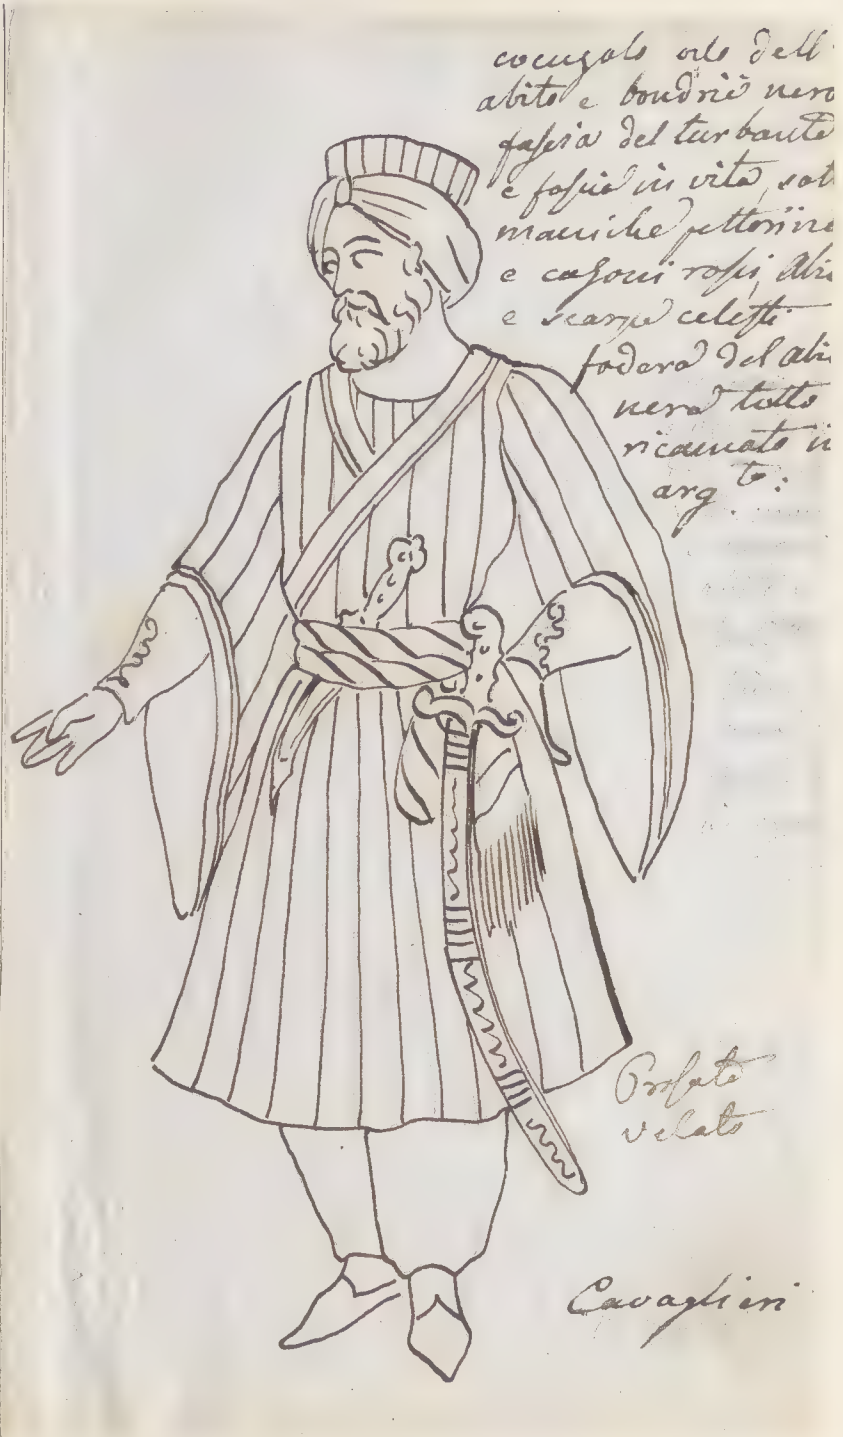 cocuzolo orlo dell
abito e boudriè nero
fascia del turbante
e fascia in vita, sot
maniche pettorine
e calzoni rossi, Abi
e scarpe celesti
fodera del abi
nera tutto
ricamato in
arg.to:
velato
Cavaglieri